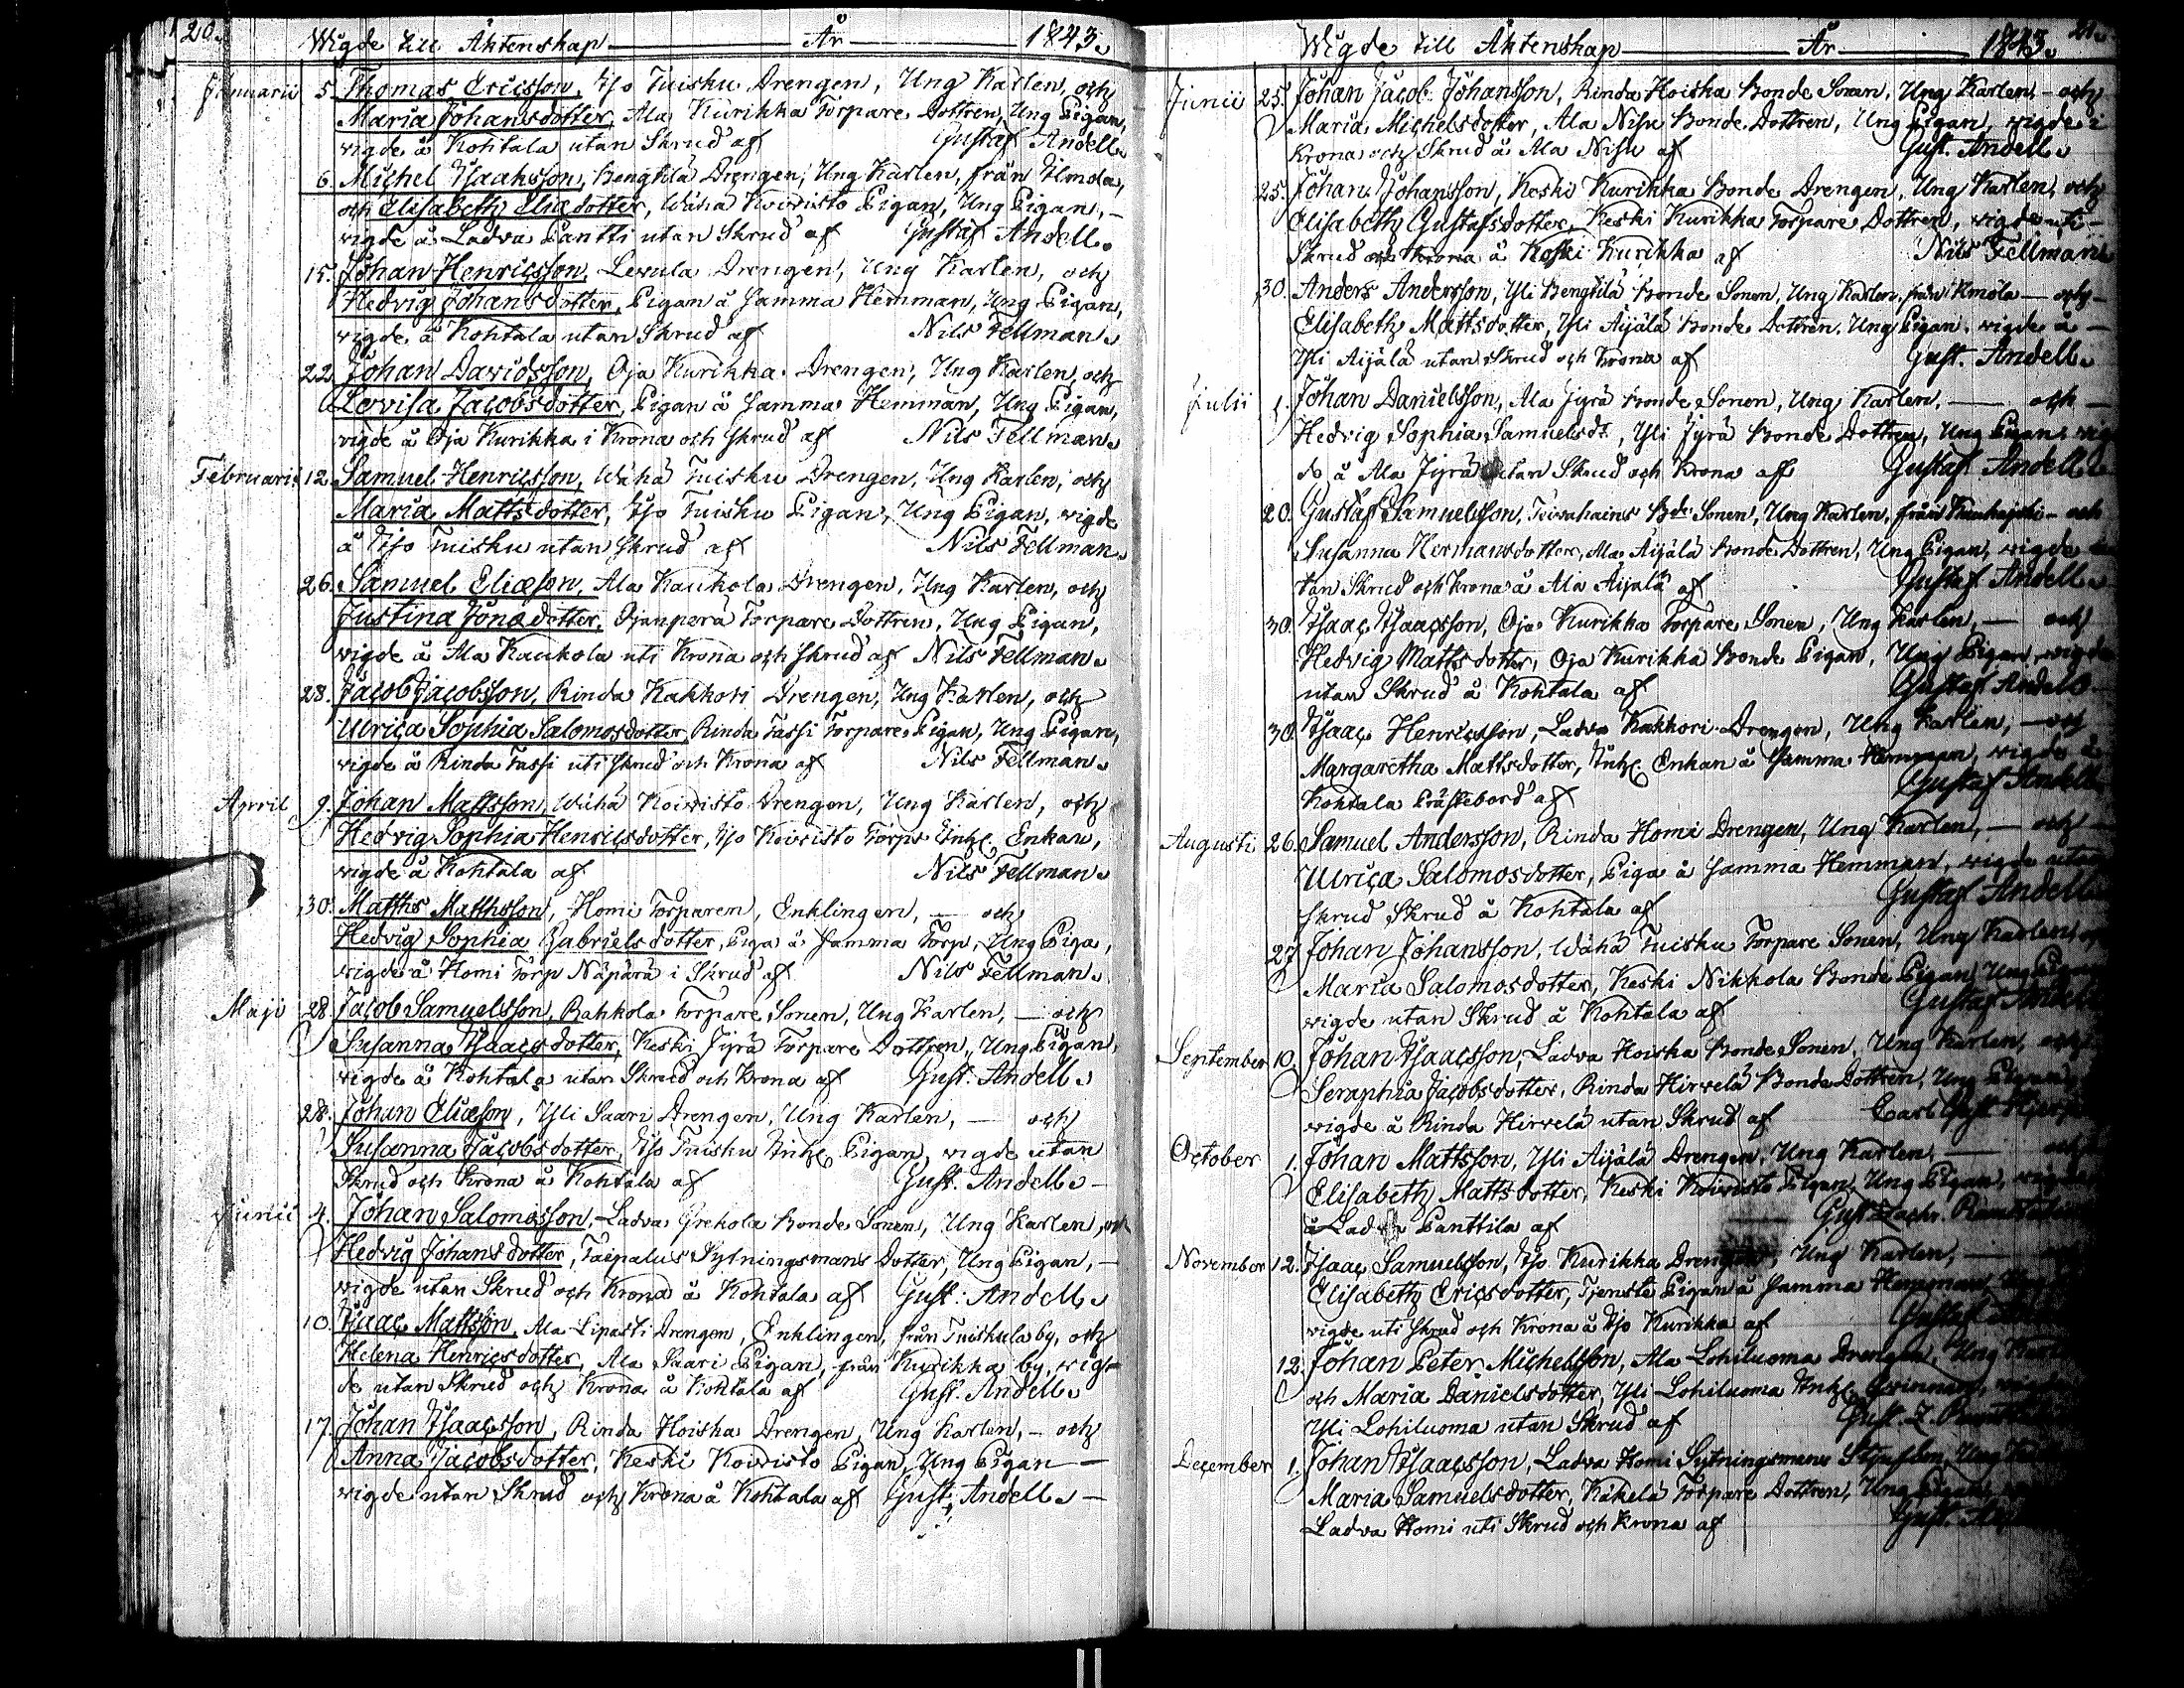 20.
Wigde till Äktenskap År 1843.
Januarii 5. Thomas Ericsson, Iso Tuisku Drengen, Ung Karlen, och
Maria Johansdotter, Ala Kurikka Torpare Dottren, Ung Pigan,
vigde å Kohtala utan Skrud af Gustaf Andell.
6. Michel Isaaksson, Bengtilä Drengen, Ung Karlen, från Ilmola,
och Elisabeth Eliædotter, Wähä Koivisto Pigan, Ung Pigan, –
vigde å Ladva Pantti utan Skrud af Gustaf Andell.
15. Johan Henricsson, Levula Drengen, Ung Karlen, och
Hedvig Johansdotter, Pigan å samma Hemman, Ung Pigan,
vigde å Kohtala utan Skrud af Nils Fellman.
22. Johan Davidsson, Oja Kurikka Drengen, Ung Karlen, och
Lovisa Jacobsdotter, Pigan å samma Hemman, Ung Pigan,
vigde å Oja Kurikka i Krona och Skrud af Nils Fellman.
Februarii 12. Samuel Henricsson, Wähä Tuisku Drengen, Ung Karlen, och
Maria Mattsdotter, Iso Tuisku Pigan, Ung Pigan, vigde
å Iso Tuisku utan Skrud af Nils Fellman.
26. Samuel Eliæson, Ala Kaukola Drengen, Ung Karlen, och
Justina Jonædotter, Ojanperä Torpare Dottren, Ung Pigan,
vigde å Ala Kaukola uti Krona och Skrud af Nils Fellman.
28. Jacob Jacobsson, Rinda Kakkori Drengen, Ung Karlen, och
Ulrica Sophia Salomosdotter, Rinda Tassi Torpare Pigan, Ung Pigan,
vigde å Rinda Tassi uti Skrud och Krona af Nils Fellman.
April 9. Johan Mattsson, Wähä Koivisto Drengen, Ung Karlen, och
Hedvig Sophia Henricsdotter, Iso Koivisto Torps Inh. Enkan,
vigde å Kohtala af Nils Fellman.
30. Matths Matthsson, Homi Torparen, Enklingen, – och
Hedvig Sophia Gabrielsdotter, Piga å samma Torp, Ung Piga,
vigde å Homi Torp Näpärä i Skrud af Nils Fellman.
Maji 28. Jacob Samuelsson, Rahkola Torpare Sonen, Ung Karlen, – och
Susanna Isaacsdotter, Keski Jyrä Torpare Dottren, Ung Pigan,
vigde å Kohtala utan Skrud och Krona af Gust. Andell.
28. Johan Eliæson, Yli Saari Drengen, Ung Karlen, – och
Susanna Jacobsdotter, Iso Tuisku Inh. Pigan, vigde utan
Skrud och Krona å Kohtala af Gust. Andell. –
Junii 4. Johan Salomosson, Ladva Grekola Bonde Sonen, Ung Karlen, och
Hedvig Johansdotter, Taipalus Sytningsmans Dotter, Ung Pigan, –
vigde utan Skrud och Krona å Kohtala af Gust. Andell.
10. Isaac Mattsson, Ala Lipasti Drengen, Enklingen, från Tuiskula by, och
Helena Henricsdotter, Ala Saari Pigan, från Kurikka by, vig-
de utan Skrud och Krona å Kohtala af Gust. Andell.
17. Johan Isaacsson, Rinda Hoiska Drengen, Ung Karlen, – och
Anna Jacobsdotter, Keski Koivisto Pigan, Ung Pigan –
vigde utan Skrud och Krona å Kohtala af Gust. Andell. –
21.
Wigde till Äktenskap År 1843.
Junii 25. Johan Jacob Johansson, Rinda Hoiska Bonde Sonen, Ung Karlen, – och
Maria Michelsdotter, Ala Nisu Bonde Dottren, Ung Pigan, vigde i
Krona och Skrud å Ala Nisu af Gust. Andell.
25. Johan Johansson, Koski Kurikka Bonde Drengen, Ung Karlen, och
Elisabeth Gustafsdotter, Keski Kurikka Torpare Dottren, vigde uti –
Skrud och Krona å Koski Kurikka af Nils Fellman
30. Anders Andersson, Yli Bengtilä Bonde Sonen, Ung Karlen, från Ilmola – och –
Elisabeth Mattsdotter, Yli Aijälä Bonde Dottren, Ung Pigan, vigde å –
Yli Aijälä utan Skrud och Krona af Gust. Andell.
Julii 1. Johan Danielsson, Ala Jyrä Bonde Sonen, Ung Karlen, – och –
Hedvig Sophia Samuelsdr, Yli Jyrä Bonde Dottren, Ung Pigan vig
de å Ala Jyrä utan Skrud och Krona af Gustaf Andell.
20. Gustaf Samuelsson, Bde Sonen, Ung Karlen, från – och
Susanna Hermansdotter, Ala Aijälä Bonde Dottren, Ung Pigan, vigde
tan Skrud och Krona å Ala Aijälä af Gustaf Andell.
30. Isaac Isaacsson, Oja Kurikka Torpare Sonen, Ung Karlen, – och
Hedvig Mattsdotter, Oja Kurikka Bonde Pigan, Ung Pigan, vigde
utan Skrud å Kohtala af Gustaf Andell
30. Isaac Henricsson, Ladva Kakkori Drengen, Ung Karlen, – och
Margaretha Mattsdotter, Inh. Enkan å samma Hemman, vigde å
Kohtala Prästebord af Gustaf Andell
Augusti 26. Samuel Andersson, Rinda Homi Drengen, Ung Karlen, – och –
Ulrica Salomosdotter, Piga å samma Hemman, vigde utan
Skrud Skrud å Kohtala af Gustaf Andell
27. Johan Johansson, Wähä Tuisku Torpare Sonen, Ung Karlen, och
Maria Salomosdotter, Keski Nikkola Bonde Pigan, Ung Pigan
vigde utan Skrud å Kohtala af Gustaf Andell
September 10. Johan Isaacsson, Ladva Hoiska Bonde Sonen, Ung Karlen, och
Seraphia Jacobsdotter, Rinda Hirvelä Bonde Dottren, Ung Pigan
vigde å Rinda Hirvelä utan Skrud af Carl Gust.
October 1. Johan Mattsson, Yli Aijälä Drengen, Ung Karlen, –
Elisabeth Mattsdotter, Keski Koivisto Pigan, Ung Pigan, vigde
å Ladva Panttila af Gust.
November 12. Isaac Samuelsson, Iso Kurikka Drengen, Ung Karlen, –
Elisabeth Ericsdotter, Tjenste Pigan å samma Hemman
vigde uti Skrud och Krona å Iso Kurikka af Gustaf
12. Johan Peter Michelsson, Ala Lohiluoma Drengen, Ung
och Maria Danielsdotter, Yli Lohiluoma Inh. Qvinnan,
Yli Lohiluoma utan Skrud af Gust. Z.
December 1. Johan Isaacsson, Ladva Homi Sytningsmans Ung
Maria Samuelsdotter, Käkelä Torpare Dottren, Ung Pigan
Ladva Homi uti Skrud och Krona af Gust.